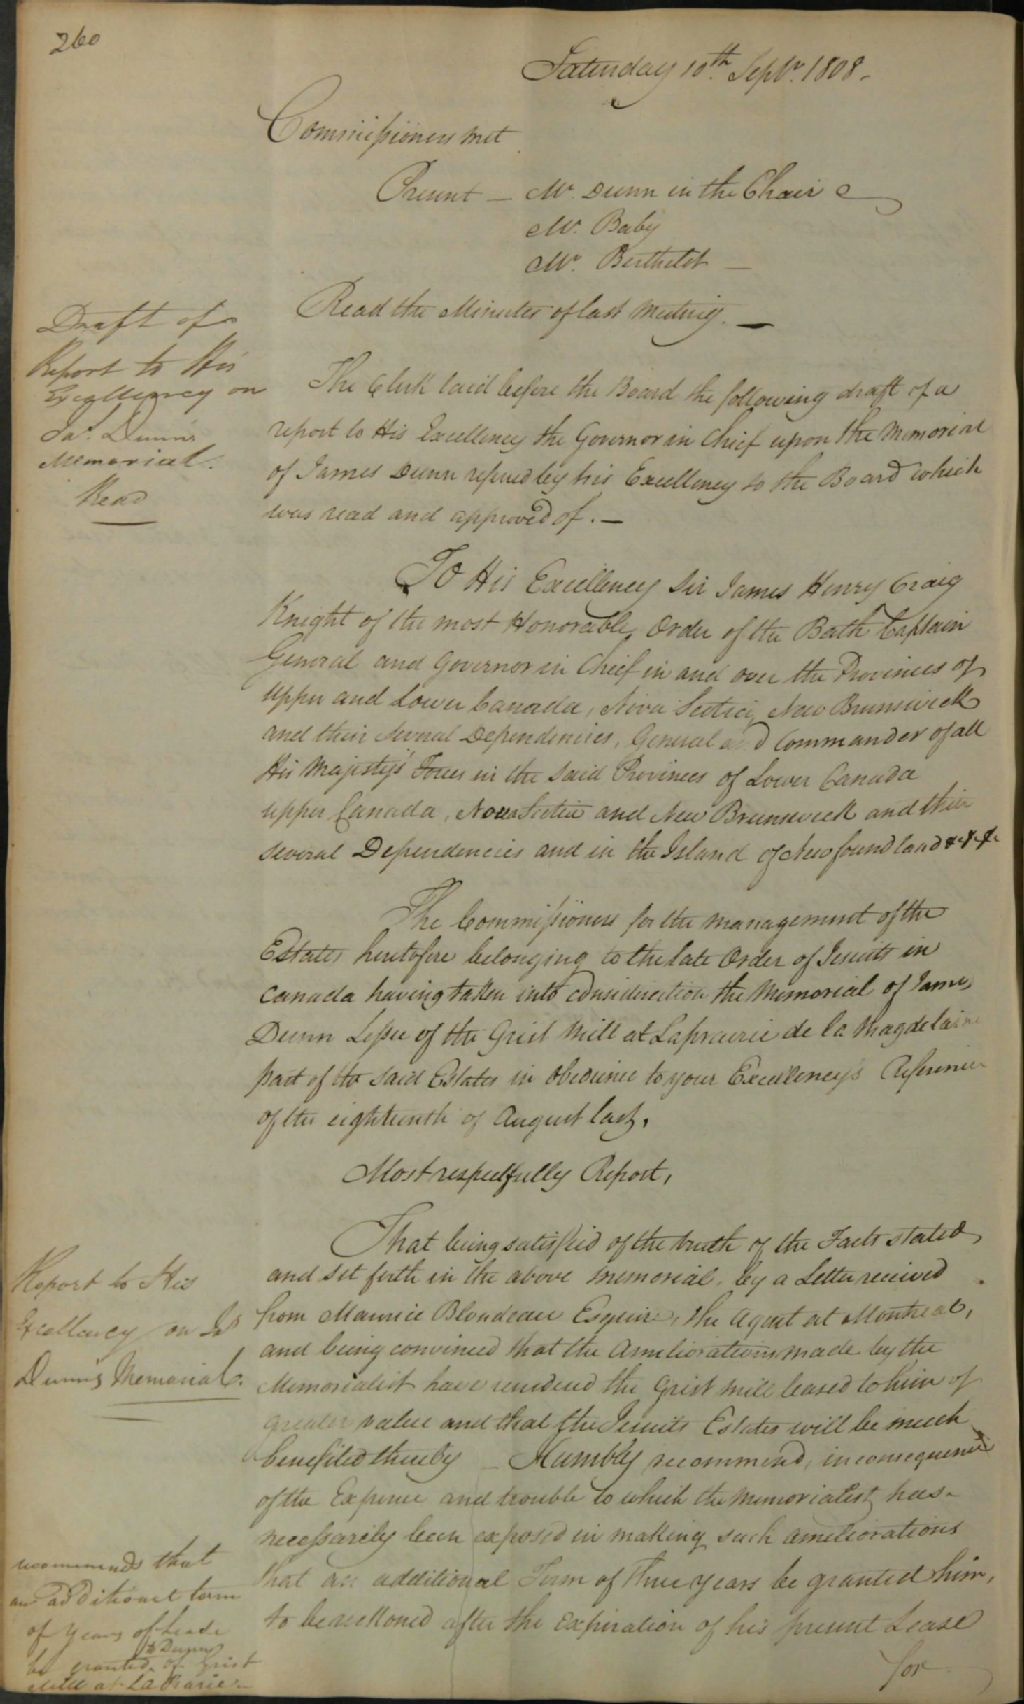 260
Saturday 10th Septr. 1808.
Commissioners met
Present — Mr. Dunn in the Chair
Mr. Baby
Mr. Berthelot —
Read the Minutes of last Meeting. —
Draft of
Report to His
Excellency on
Jas. Dunn's
Memorial.
Read
The Clerk laid before the Board the following draft of a
report to His Excellency the Governor in Chief upon the Memorial
of James Dunn referred by his Excellency to the Board which
was read and approved of. —
To His Excellency Sir James Henry Craig
Knight of the most Honorable Order of the Bath Captain
General and Governor in Chief in and over the Provinces of
Upper and Lower Canada, Nova Scotia, New Brunswick
and their several Dependencies, General and Commander of all
His Majesty's Forces in the said Provinces of Lower Canada
upper Canada, Nova Scotia and New Brunswick and their
several Dependencies and in the Island of Newfoundland &c &c &c
The Commissioners for the management of the
Estates heretofore belonging to the late Order of Jesuits in
Canada having taken into consideration the Memorial of James
Dunn Lessee of the Grist Mill at Laprairie de la Magdelaine
part of the said Estates in obedience to your Excellency's Reference
of the eighteenth of August last,
Most respectfully Report,
That being satisfied of the truth of the Facts stated
and set forth in the above memorial, by a Letter received
from Maurice Blondeau Esquire, the Agent at Montreal,
and being convinced that the Ameliorations made by the
Memorialist have rendered the Grist mill leased to him of
greater value and that the Jesuits Estates will be much
benefited thereby — Humbly recommend, in consequence
of the Expence and trouble to which the Memorialist has
necessarily been exposed in making such ameliorations
that an additional Term of Three years be granted him,
to be reckoned after the Expiration of his present Lease
for
Report to His
Excellency on Jas
Dunn's Memorial.
recommends that
an additional term
of years of Lease
be granted to Dunn of Grist
Mill at La Prarie —